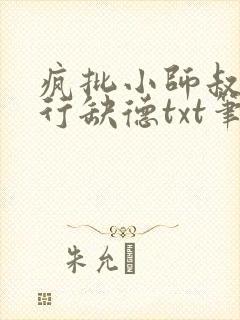 疯批小師叔
行缺德txt筆
朱允